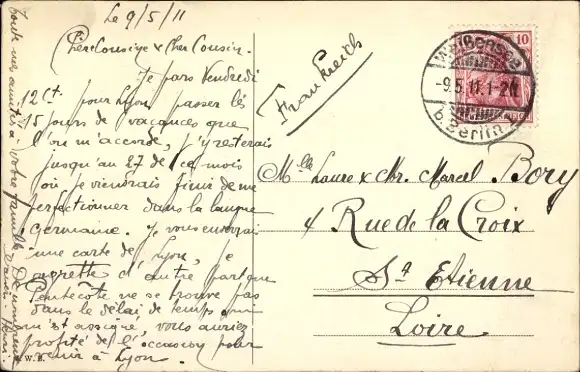 Le 9/5/11
Chère Cousine & Cher Cousin.
Je pars Vendredi
12 Ct pour Lyon passer les
15 jours de vacances que
l'on m'accorde, j'y resterais
jusqu'au 27 de ce mois
où je viendrais finir de me
perfectionner dans la langue
germaine. Je vous enverrai
une carte de Lyon, je
regrette d'autre part que
Pentecôte ne se trouve pas
dans le délai de temps qui
m'est assigné, vous auriez
profité de l'occasion pour
venir à Lyon.
mes amitiés à votre famille
W.B.
Frankreich
10
Weißensee
-9.5.11.1-2N
b. Berlin
Mlle Laure & Mr. Marcel Bory
4 Rue de la Croix
St Etienne
Loire